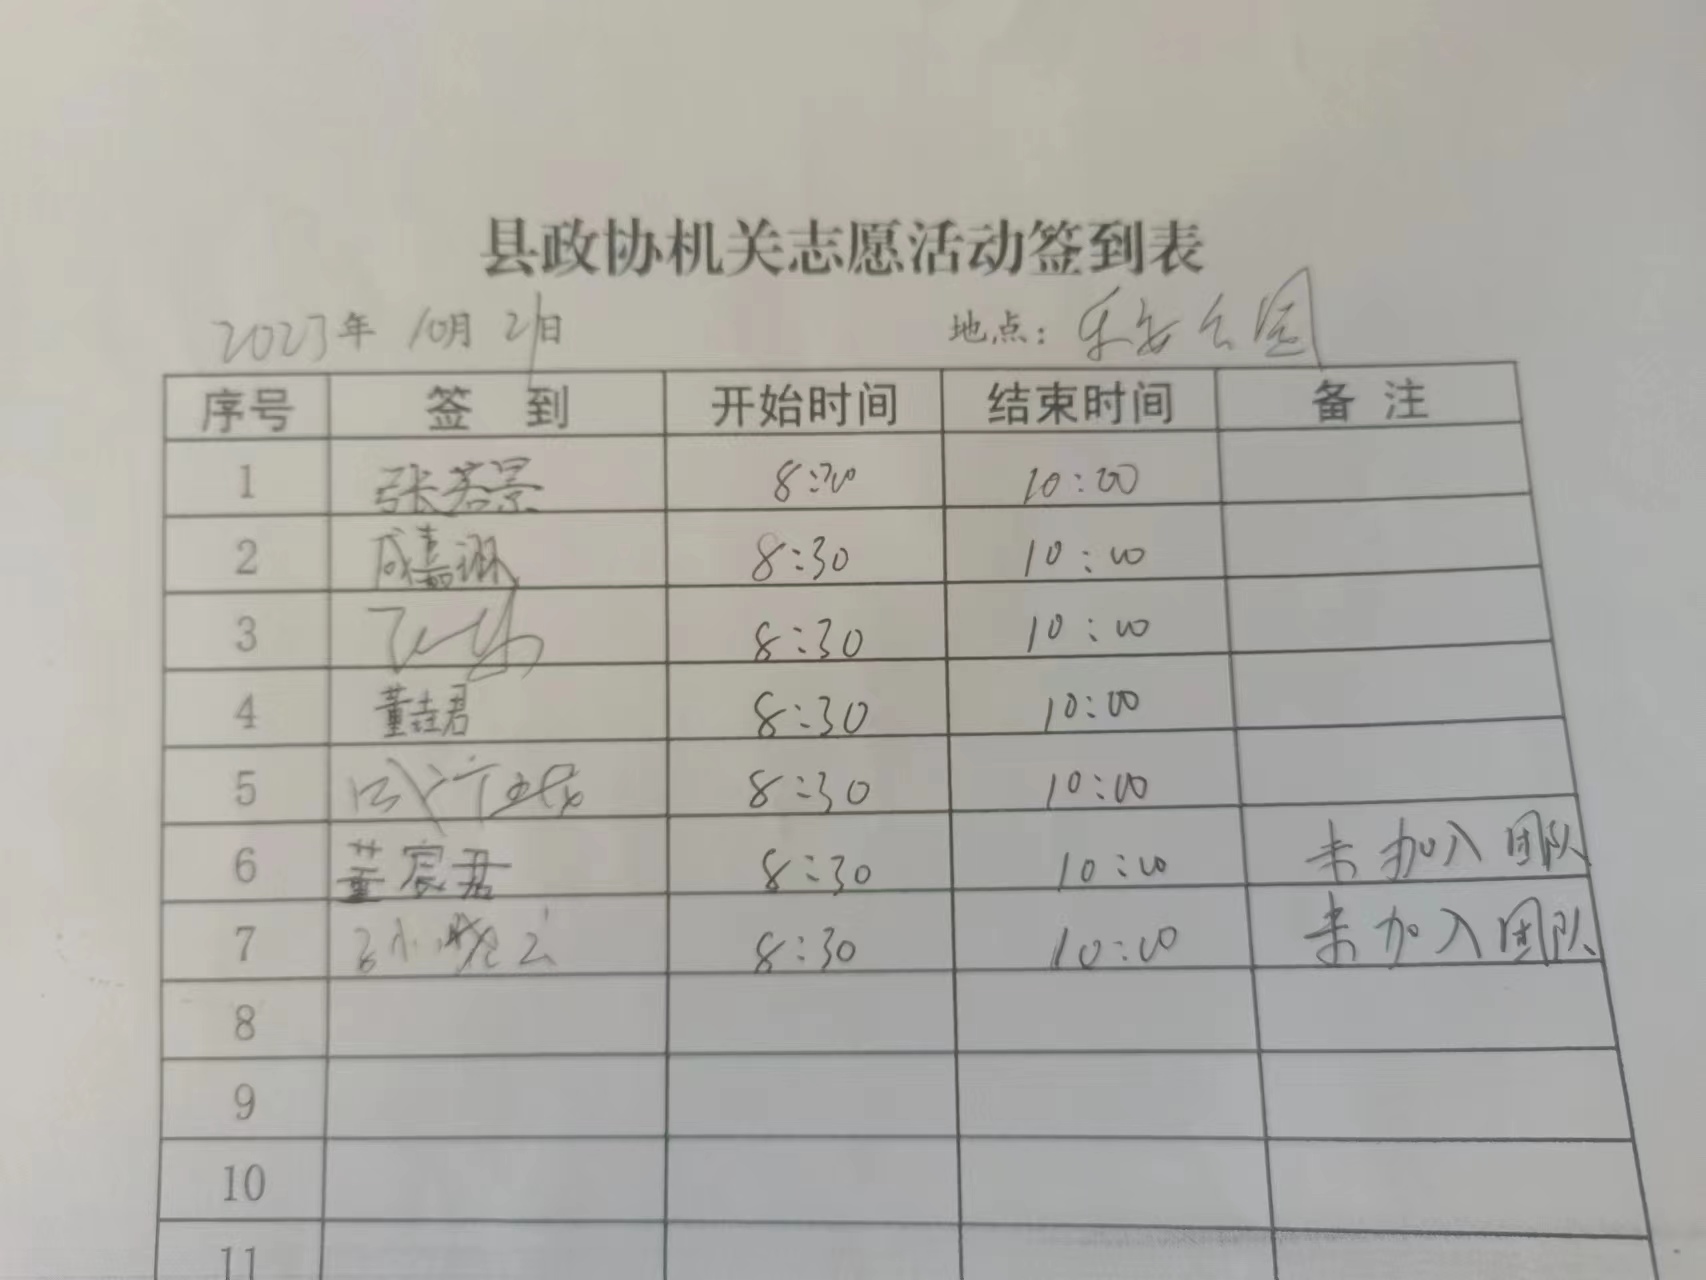 县政协机关志愿活动签到表
2023年 10月 21日 地点：乐安公园
序号 签 到 开始时间 结束时间 备 注
1 张若景 8:30 10:00
2 成嘉琳 8:30 10:00
3 8:30 10:00
4 董垚君 8:30 10:00
5 8:30 10:00
6 董宸君 8:30 10:00 未加入团队
7 8:30 10:00 未加入团队
8
9
10
11